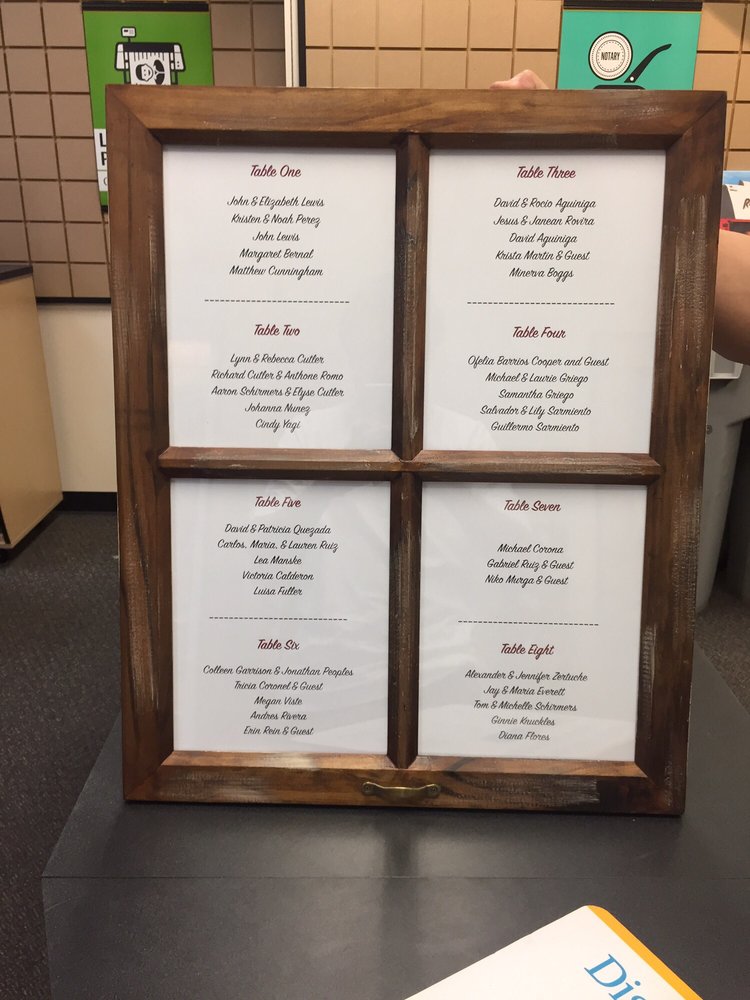 NOTARY
Table One
John & Elizabeth Lewis
Kristen & Noah Perez
John Lewis
Margaret Bernal
Matthew Cunningham
Table Two
Lynn & Rebecca Cutler
Richard Cutler & Anthone Romo
Aaron Schirmers & Elyse Cutler
Johanna Nunez
Cindy Yagi
Table Three
David & Rocio Aguiniga
Jesus & Janean Rovira
David Aguiniga
Krista Martin & Guest
Minerva Boggs
Table Four
Ofelia Barrios Cooper and Guest
Michael & Laurie Griego
Samantha Griego
Salvador & Lily Sarmiento
Guillermo Sarmiento
Table Five
David & Patricia Quezada
Carlos, Maria, & Lauren Ruiz
Lea Manske
Victoria Calderon
Luisa Fuller
Table Six
Colleen Garrison & Jonathan Peoples
Tricia Coronel & Guest
Megan Viste
Andres Rivera
Erin Rein & Guest
Table Seven
Michael Corona
Gabriel Ruiz & Guest
Niko Murga & Guest
Table Eight
Alexander & Jennifer Zertuche
Jay & Maria Everett
Tom & Michelle Schirmers
Ginnie Knuckles
Diana Flores